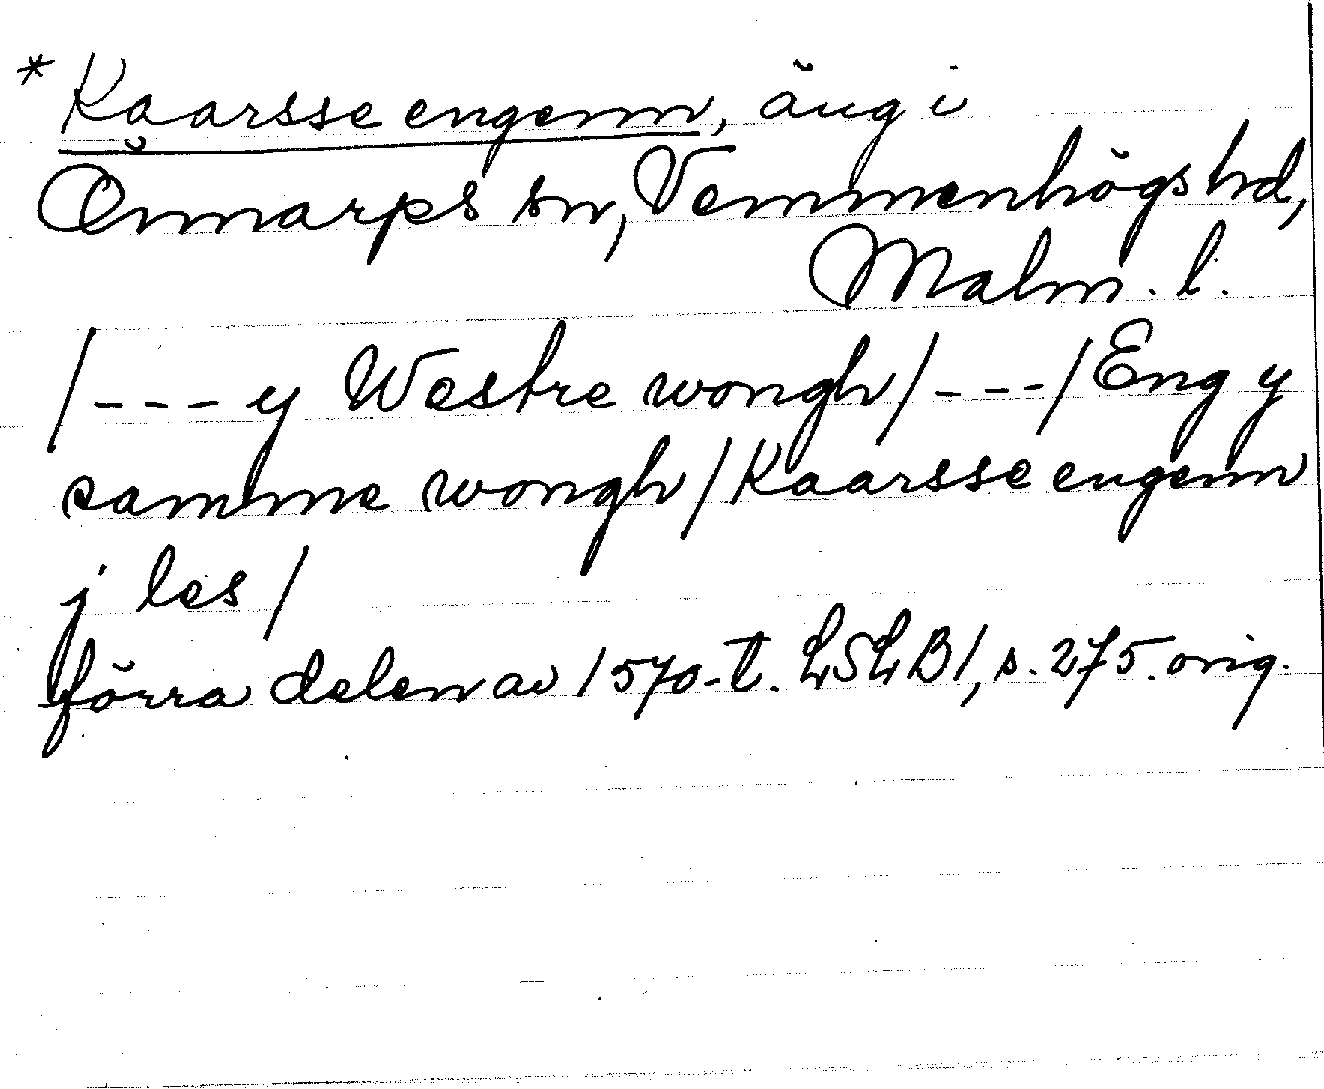 * Kaarsse engenn, äng i
Önnarps sn, Vemmenhögs hd,
Malm. l.
/--- y Westre wongh/---/Eng y
samme wongh/Kaarsse engenn
j les/
förra delen av 1570-t. LSLB1, s. 275. orig.